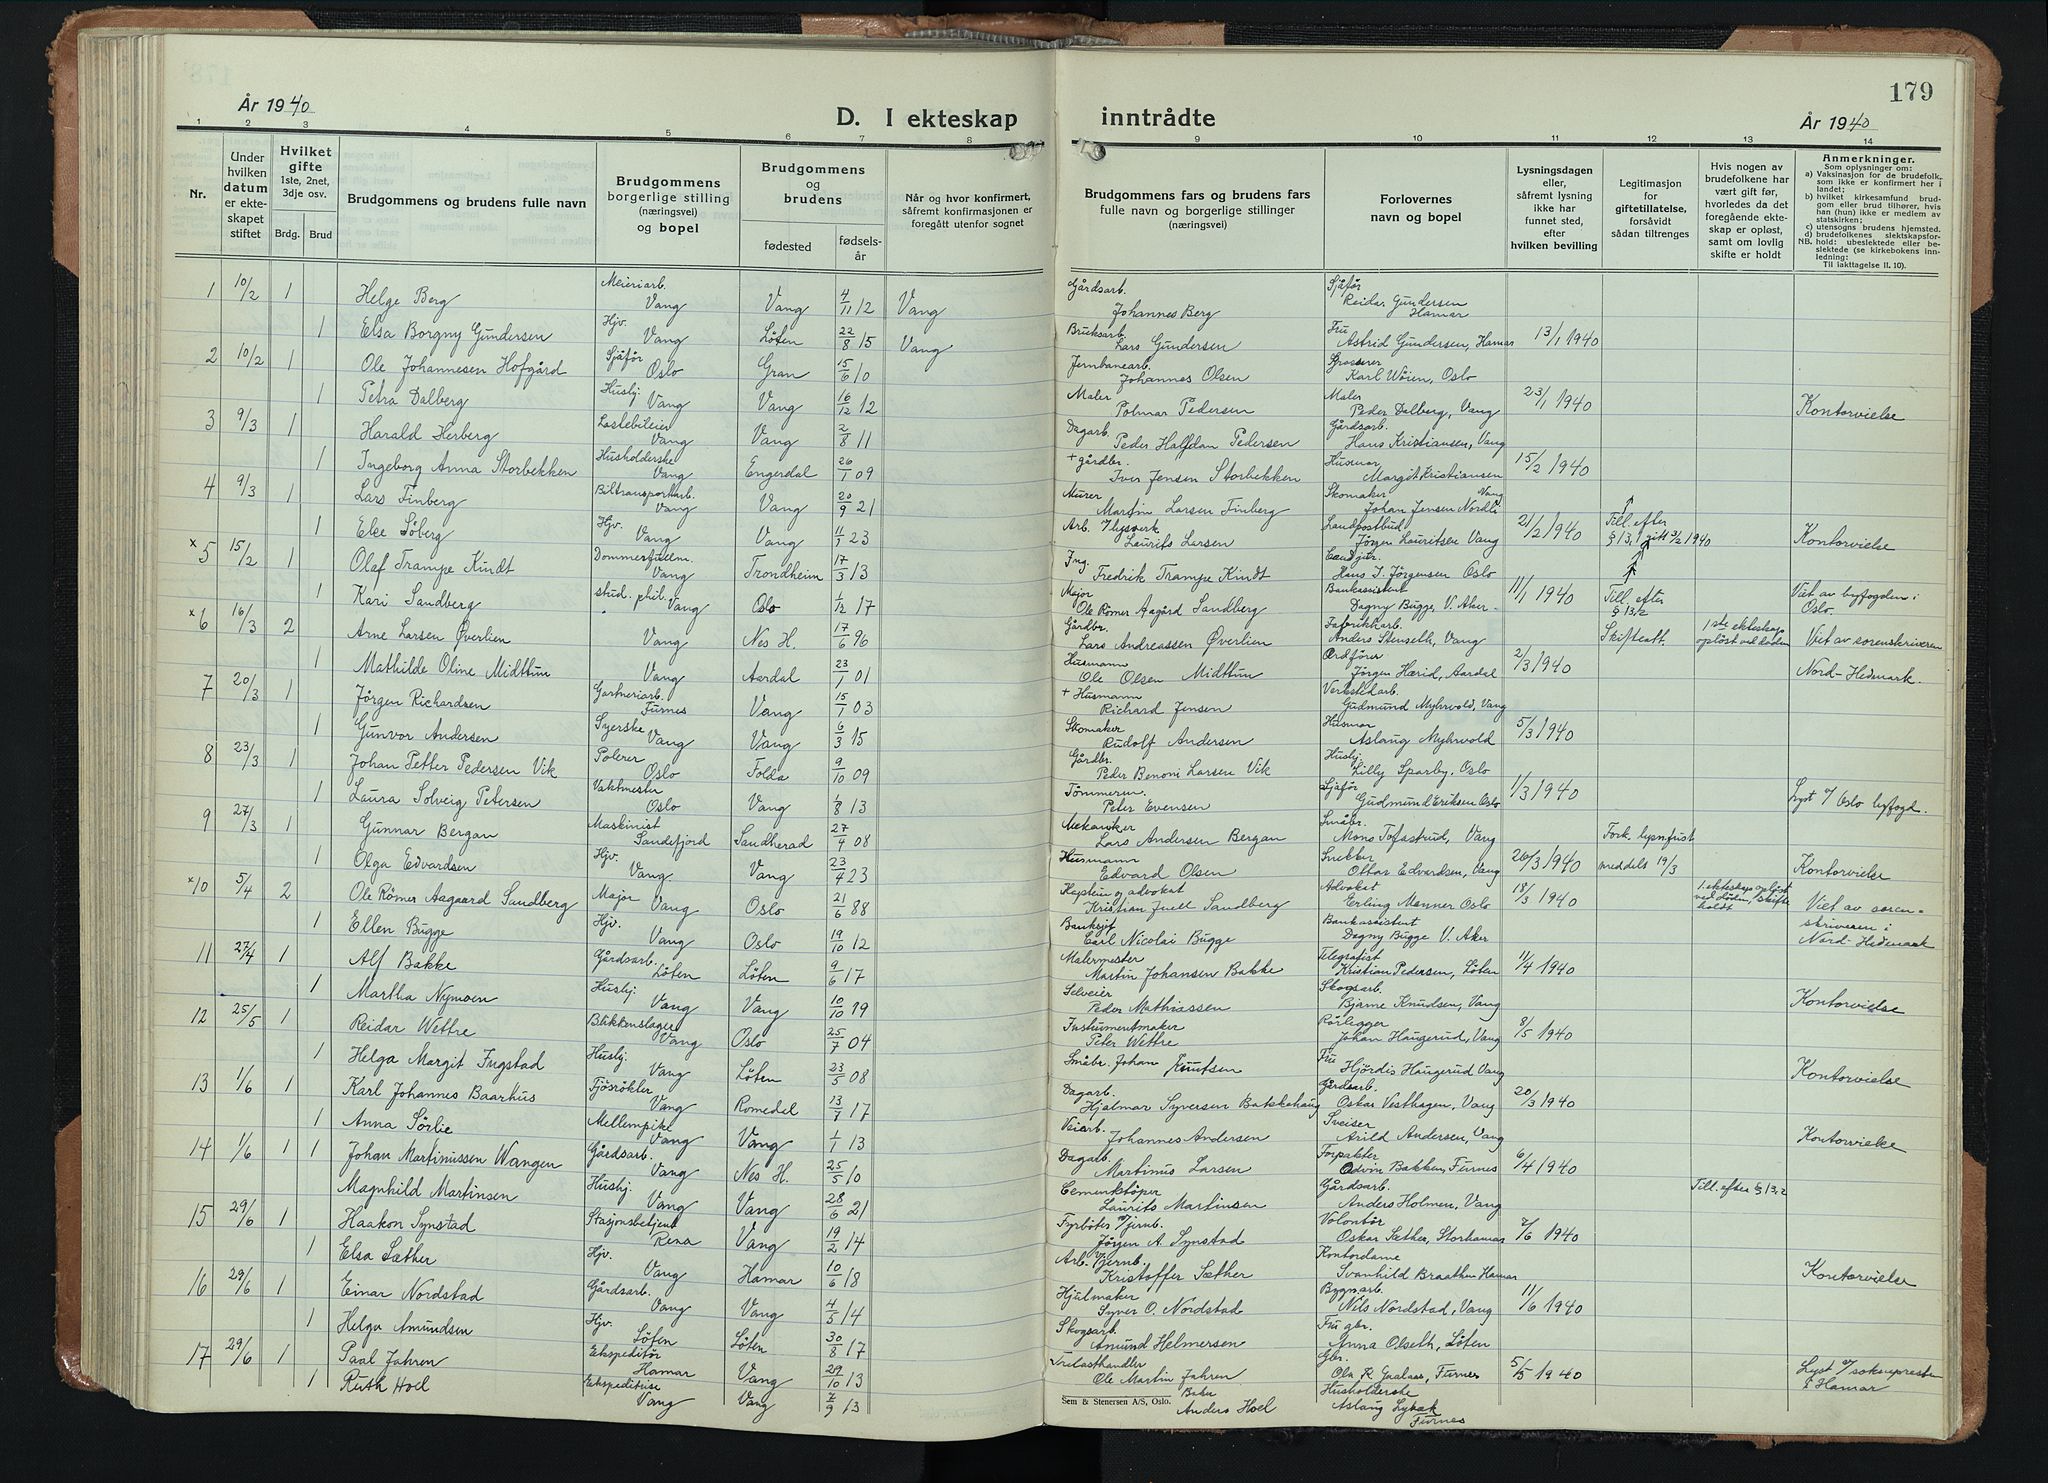 179
År 1940
D. I ekteskap inntrådte
År 1940
1 2 3 4 5 6 7 8 9 10 11 12 13 14
Nr.
Under hvilken datum er ekteskapet stiftet
Hvilket gifte 1ste, 2net, 3dje osv.
Brdg. Brud
Brudgommens og brudens fulle navn
Brudgommens borgerlige stilling (næringsvei) og bopel
Brudgommens og brudens
fødested
fødselsår
Når og hvor konfirmert, såfremt konfirmasjonen er foregått utenfor sognet
Brudgommens fars og brudens fars fulle navn og borgerlige stillinger (næringsvei)
Forlovernes navn og bopel
Lysningsdagen eller, såfremt lysning ikke har funnet sted, efter hvilken bevilling
Legitimasjon for giftetillatelse, forsåvidt sådan tiltrenges
Hvis nogen av brudefolkene har vært gift før, hvorledes da det foregående ekteskap er opløst, samt om lovlig skifte er holdt
Anmerkninger.
Som oplysninger om:
a) Vaksinasjon for de brudefolk, som ikke er konfirmert her i landet;
b) hvilket kirkesamfund brudgom eller brud tilhører, hvis han (hun) ikke er medlem av statskirken;
c) utensogns brudens hjemsted.
d) brudefolkenes slektskapsforhold: ubeslektede eller beslektede (se kirkebokens innledning:
NB.
Til iakttagelse II. 10).
1 10/2 1 Helge Berg Meieriarb. Vang Vang 4/11 12 Vang Gårdsarb. Johannes Berg Sjåfør Reidar Gundersen Hamar
1 Elsa Borgny Gundersen Hjv. Vang Løten 22/8 15 Vang Bruksarb. Lars Gundersen Fru Astrid Gundersen, Hamar 13/1 1940
2 10/2 1 Ole Johannesen Hofgård Sjåfør Oslo Gran 15/6 10 Jernbanearb. Johannes Olsen Grosserer Karl Wøien, Oslo
1 Petra Dalberg Hushj. Vang Vang 16/12 12 Maler Polmar Pedersen Maler Peder Dalberg, Vang 23/1 1940 Kontorvielse
3 9/3 1 Harald Herberg Lastebileier Vang Vang 2/8 11 Dagarb. Peder Halfdan Pedersen Gårdsarb. Hans Kristiansen, Vang
1 Ingeborg Anna Storbekken Husholderske Vang Engerdal 26/1 09 + gårdbr. Iver Jensen Storbekken Husmor Margit Kristiansen Vang 15/2 1940
4 9/3 1 Lars Finberg Biltransportarb. Vang Vang 20/9 21 Murer Martin Larsen Finberg Skomaker Johan Jensen Nordli
1 Else Søberg Hjv. Vang Vang 11/1 23 Arb. v/lysverk Laurits Larsen Landpostbud Jørgen Lauritsen Vang 21/2 1940 Till. efter § 13,1 gitt 3/2 1940 Kontorvielse
×5 15/2 1 Olaf Trampe Kindt Dommerfullm. Vang Trondheim 17/3 13 Ing. Fredrik Trampe Kindt Cand. jur. Hans J. Jørgensen Oslo
1 Kari Sandberg stud. phil. Vang Oslo 1/12 17 Major Ole Rømer Aagård Sandberg Bankassistent Dagny Bugge, V. Aker 11/1 1940 Till. efter § 13,2 Viet av byfogden i Oslo.
×6 16/3 2 Arne Larsen Øverlien Vang Nes H. 17/6 96 Gårdbr. Lars Andreassen Øverlien Fabrikkarb. Anders Stenseth, Vang Skifteatt. 1ste ekteskap opløst ved døden Viet av sorenskriveren
1 Mathilde Oline Midttun Vang Aardal 23/1 01 Husmann Ole Olsen Midttun Ordfører Jørgen Hærid, Aardal 2/3 1940 Nord-Hedmark.
7 20/3 1 Jørgen Richardsen Gartneriarb. Furnes Vang 15/1 03 + Husmann Richard Jensen Verkstedarb. Gudmund Myhrvold, Vang
1 Gunvor Andersen Syerske Vang Vang 6/3 15 Skomaker Rudolf Andersen Husmor Aslaug Myhrvold 5/3 1940
8 23/3 1 Johan Petter Pedersen Vik Polerer Oslo Folda 9/10 09 Gårdbr. Peder Benoni Larsen Vik Hushj. Lilly Sparby, Oslo
1 Laura Solveig Petersen Vaktmester Oslo Vang 1/8 13 Tømmerm. Peter Evensen Sjåfør Gudmund Eriksen Oslo 1/3 1940 Lyst v/ Oslo byfogd.
9 27/3 1 Gunnar Bergan Maskinist Sandefjord Sandherad 27/4 08 Mekaniker Lars Andersen Bergan Småbr. Mons Tofastrud, Vang Fork. lysn.frist
1 Olga Edvardsen Hjv. Vang Vang 23/4 23 Husmann Edvard Olsen Snekker Ottar Edvardsen, Vang 20/3 1940 meddelt 19/3 Kontorvielse
×10 5/4 2 Ole Rømer Aagaard Sandberg Major Vang Oslo 21/6 88 Kaptein og advokat Kristian Juell Sandberg Advokat Erling Monner Oslo 18/3 1940 1. ekteskap opløst ved døden, skifte holdt Viet av sorenskriveren i Nord-Hedmark
1 Ellen Bugge Hjv. Vang Oslo 19/10 12 Banksjef Carl Nicolai Bugge Bankassistent Dagny Bugge V. Aker
11 27/4 1 Alf Bakke Gårdsarb. Løten Løten 9/6 17 Malermester Martin Johansen Bakke Telegrafist Kristian Pedersen, Løten 11/4 1940
1 Martha Nymoen Hushj. Vang Vang 10/10 19 Selveier Peder Mathiassen Skogsarb. Bjarne Knudsen, Vang Kontorvielse
12 25/5 1 Reidar Wettre Blikkenslager Vang Oslo 25/7 04 Instrumentmaker Peter Wettre Rørlegger Johan Haugerud, Vang 8/5 1940
1 Helga Margit Ingstad Hushj. Vang Løten 23/5 08 Småbr. Johan Knutsen Fru Hjördis Haugerud Vang Kontorvielse
13 1/6 1 Karl Johannes Baarhus Fjøsrøkter Vang Romedal 13/7 17 Dagarb. Hjalmar Syversen Bakkehaug Gårdsarb. Oskar Vesthagen, Vang 20/3 1940
1 Anna Sørlie Mellempike Vang Vang 1/1 13 Veiarb. Johannes Andersen Sveiser Arild Andersen, Vang Kontorvielse
14 1/6 1 1 Johan Martinussen Wangen Gårdsarb. Vang Nes H. 25/5 10 Dagarb. Martinus Larsen Forpakter Odvin Bakken, Furnes 6/4 1940
Magnhild Martinsen Hushj. Vang Vang 28/6 21 Cementstøper Laurits Martinsen Gårdsarb. Anders Holmen, Vang Till. efter § 13,2
15 29/6 1 Haakon Synstad Stasjonsbetjent Rena Vang 19/2 14 Fyrbøter v/jernb. Jørgen A. Synstad Volontør Oskar Sæther, Storhamar 7/6 1940
1 Elsa Sæther Hjv. Vang Hamar 10/6 18 Arb. v/jernb. Kristoffer Sæther Kontordame Svanhild Braathen Hamar Kontorvielse
16 29/6 1 Einar Nordstad Gårdsarb. Vang Vang 4/5 14 Hjulmaker Syver O. Nordstad Bygn.arb. Nils Nordstad, Vang 11/6 1940
1 Helga Amundsen Hjv. Løten Løten 30/8 17 Skogsarb. Amund Helmersen Fru gbr. Anna Olseth, Løten
17 29/6 1 Paal Jahren Ekspeditør Hamar Vang 29/10 13 Trelasthandler Ole Martin Jahren Gbr. Ola R. Gaalaas, Furnes 5/5 1940 Lyst v/ soknepresten i Hamar
1 Ruth Hoel Ekspeditrise Vang Vang 7/9 13 Anders Hoel Husholderske Aslaug Lybæk Furnes
Sem & Stenersen A/S, Oslo.